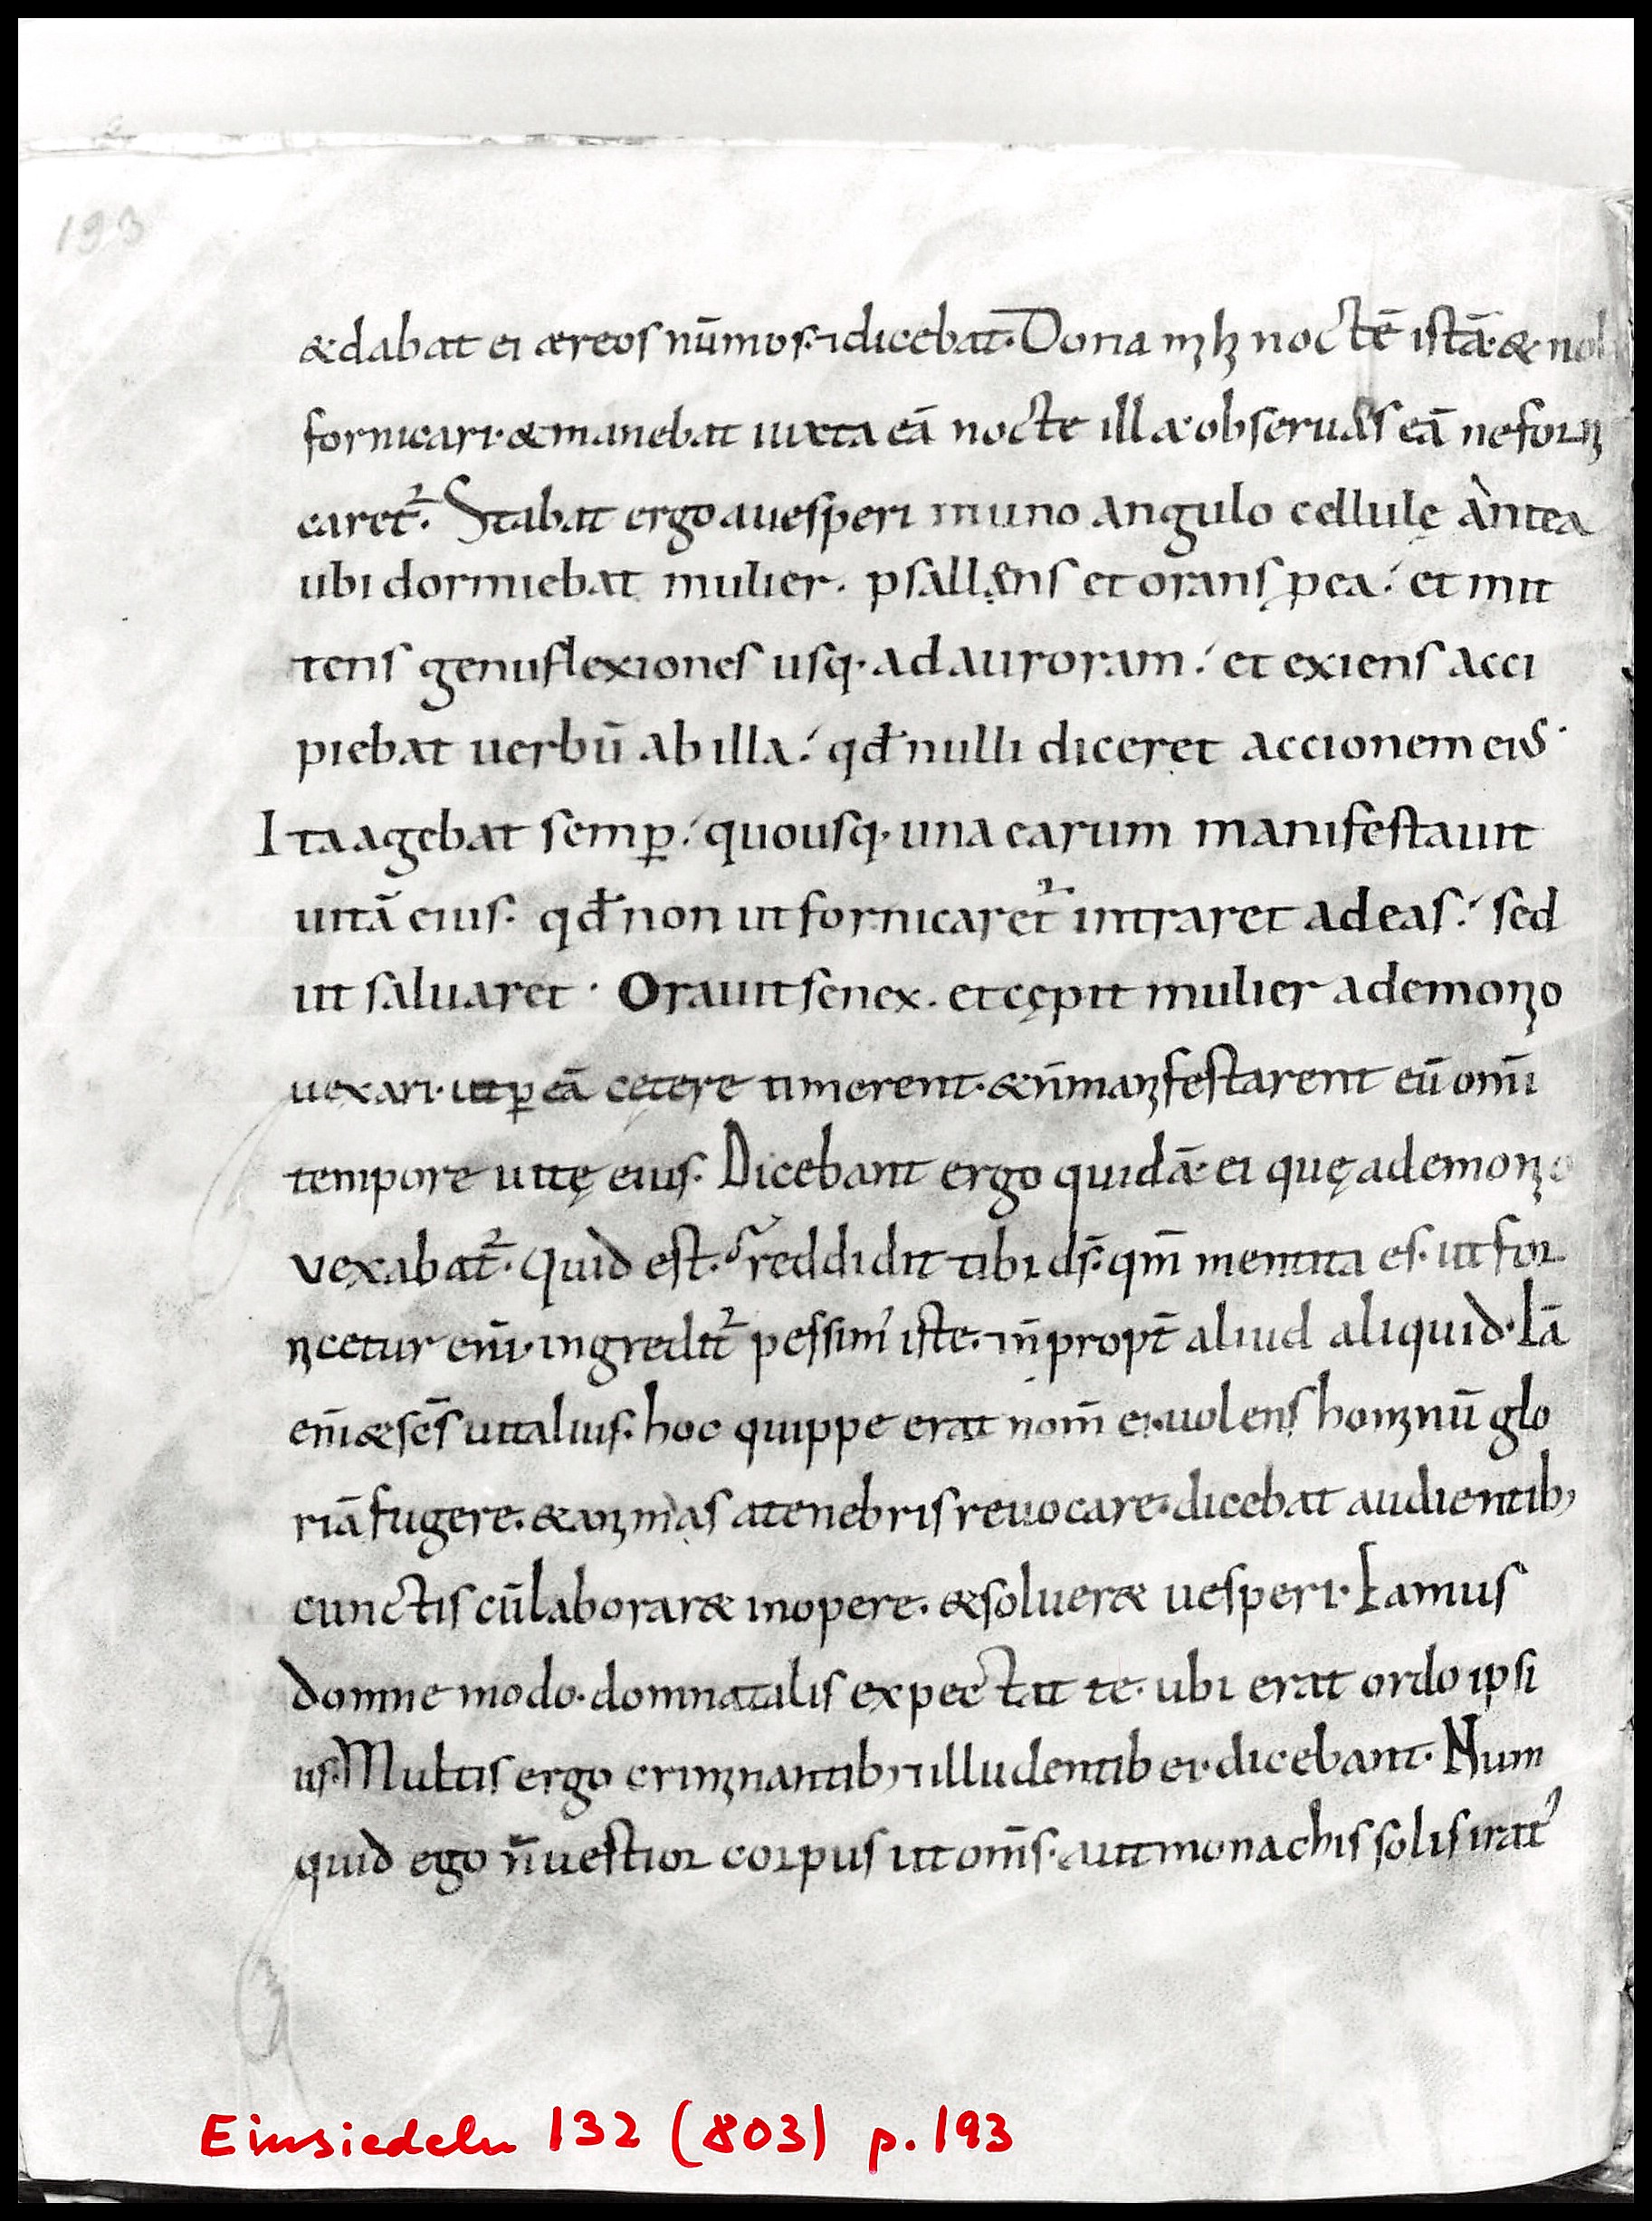 193
&dabat ei æreos nūmos·⁊dicebat·Dona mıhı noctē istā·& nol
fornicari·&manebat iuxta eā nocte illa·obseruās eā neforni
caret᷑· Stabat ergo auesperi inuno angulo cellulę àntea
ubi dormiebat mulier· psallens et orans ꝓ ea·́ et mit
tens genuflexiones usq· ad auroram·́ et exiens acci
piebat uerbū ab illa·́ qđ nulli diceret accionem eiꝰ·
Ita agebat semꝑ·́ quousq· una earum manifestauit
uitā eius· qđ non ut fornicaret᷑ intraret ad eas·́ sed
ut saluaret · Orauit senex· et cępit mulier ademonio
uexari· ut ꝑ eā cetere timerent·&n̄manifestarent eū om̄i
tempore uitę eius· Dicebant ergo quidā ei quę ademonio
vexabat᷑· Quid est·reddidit tibi d̄s·qm̄ mentita es·ut for
nicetur eni̅·ingredit᷑ pessim᾽ iste·n̄ propt̄ aliud aliquid·Iā
eni̅&sc̄s uitalius·hoc quippe erat nom̄ ei·uolens hominū glo
riā fugere·&animas atenebris reuocare·dicebat audientib;
cunctis cū laborar& inopere·&soluer& uesperi·Eamus
domne modo·domnatalis expectat te·ubi erat ordo ipsi
us·Multis ergo criminantib;⁊illudentib ei·dicebant·Num
quid ego n̄ uestior corpus ut om̄s·aut monachis solis irat᾽
Einsiedeln 132 (803) p. 193